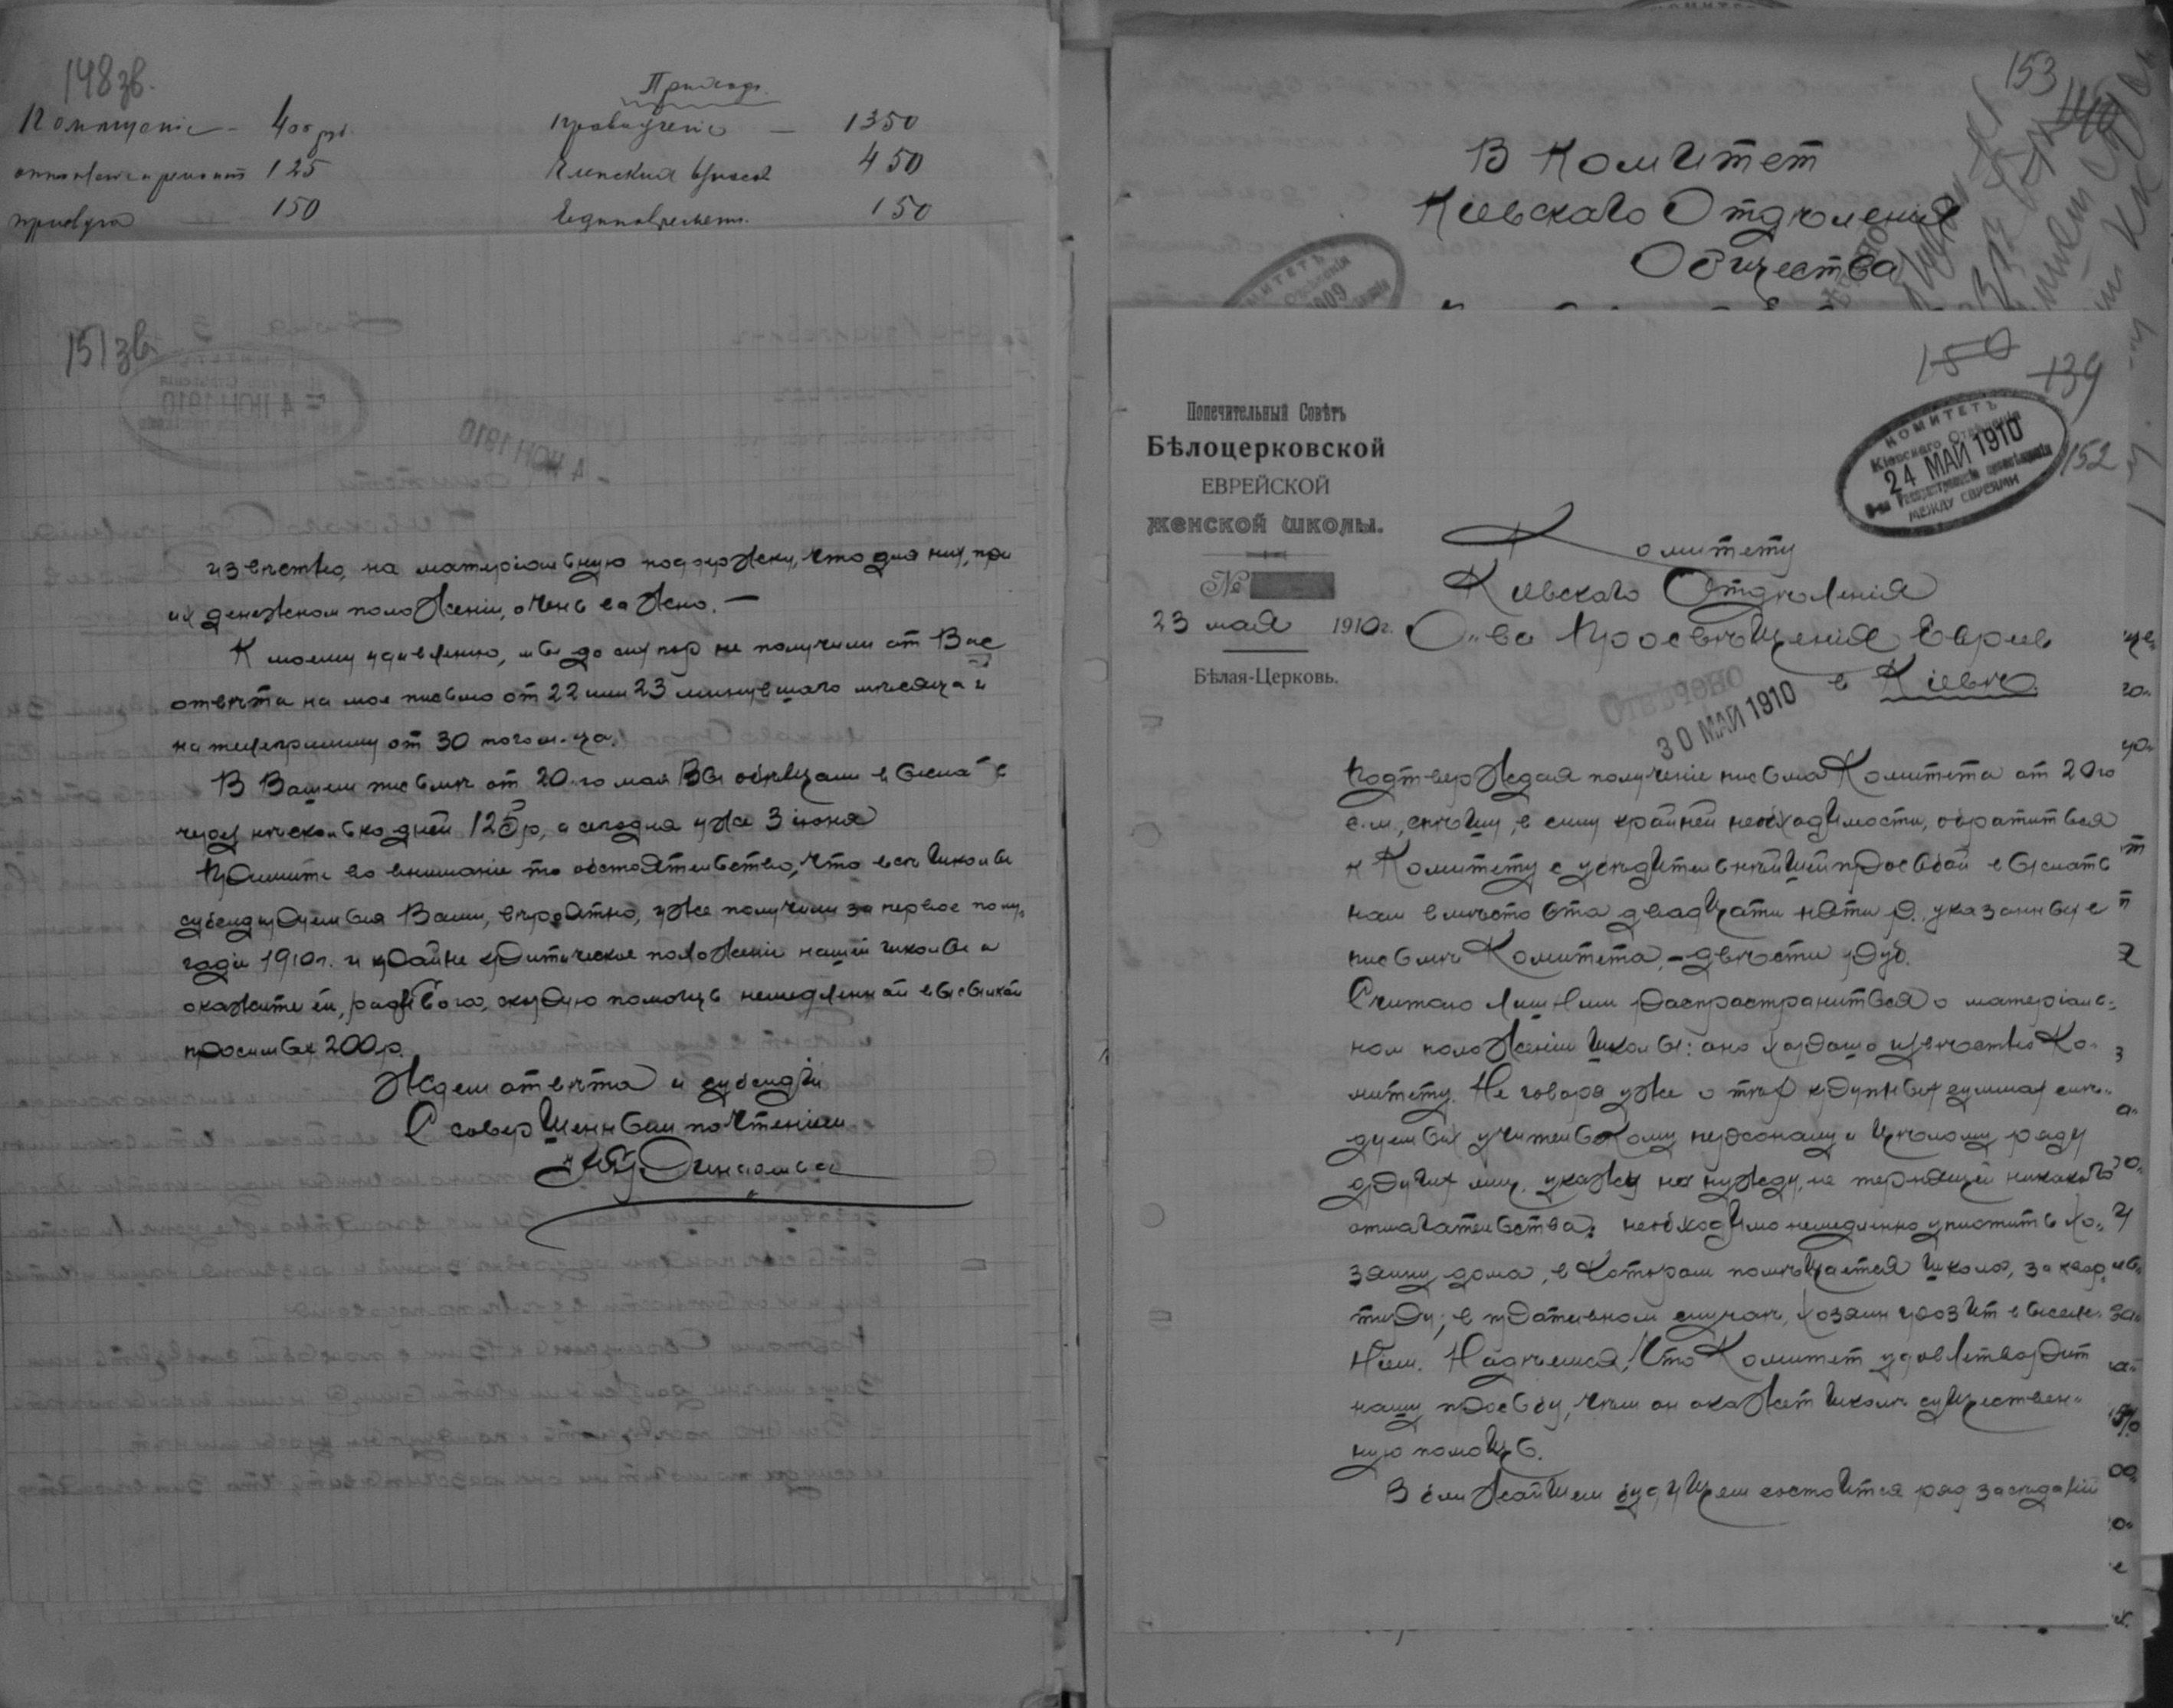 148 зв.
Приход.
Помещение — 400 руб.
125
150
Правления — 1350
Членский взнос 450
Единовремен. 150
151 зв.
известно, на матерiальную поддержку, что для них, при
их денежном положенiи, очень важно. —
К моему удивленiю, мы до сих пор не получили от Вас
отвѣта на мое письмо от 22 или 23 минувшаго мѣсяца и
на телеграмму от 30 того м-ца.
В Вашем письмѣ от 20-го мая Вы обѣщали выслать
через нѣсколько дней 125 р, а сегодня уже 3 iюня
Примите во вниманiе то обстоятельство, что всѣ школы
субсидируемыя Вами, вѣроятно, уже получили за первое полу-
годiе 1910 г. и крайне критическое положенiе нашей школы и
окажите ей, ради Бога, скорую помощь немедленной высылкой
просимых 200 р.
Ждем отвѣта и субсидiи
С совершенным почтенiем
153
140
В Комитет
Кiевскаго Отдѣленiя
Общества
150
139
152
Попечительный Совѣтъ
Бѣлоцерковской
ЕВРЕЙСКОЙ
женской школы.
№
23 мая 1910 г.
Бѣлая-Церковь.
КОМИТЕТЪ
Кiевскаго Отдѣленiя
24 МАЙ 1910
МЕЖДУ ЕВРЕЯМИ
Комитету
Кiевскаго Отдѣленiя
О-ва Просвѣщенiя Евреев
в Кiевѣ.
Отвѣчено
30 МАЙ 1910
Подтверждая полученiе письма Комитета от 20го
с.м., спѣшу, в силу крайней необходимости, обратиться
к Комитету с убѣдительнѣйшей просьбой выслать
нам вмѣсто ста двадцати пяти р., указанных в
письмѣ Комитета, — двѣсти руб.
Считаю лишним распространяться о матерiаль-
ном положенiи школы: оно хорошо извѣстно Ко-
митету. Не говоря уже о тѣх крупных суммах слѣ-
дуемых учительскому персоналу и цѣлому ряду
других лиц, укажу на нужду, не терпящей никакого
отлагательства: необходимо немедленно уплотить хо-
зяину дома, в котором помѣщается школа, за квар-
тиру; в противном случаѣ, хозяин грозит выселе-
нiем. Надѣемся, что Комитет удовлетворит
нашу просьбу, чѣм он окажет школѣ существен-
ную помощь.
В ближайшем будущем состоится ряд засѣданiй